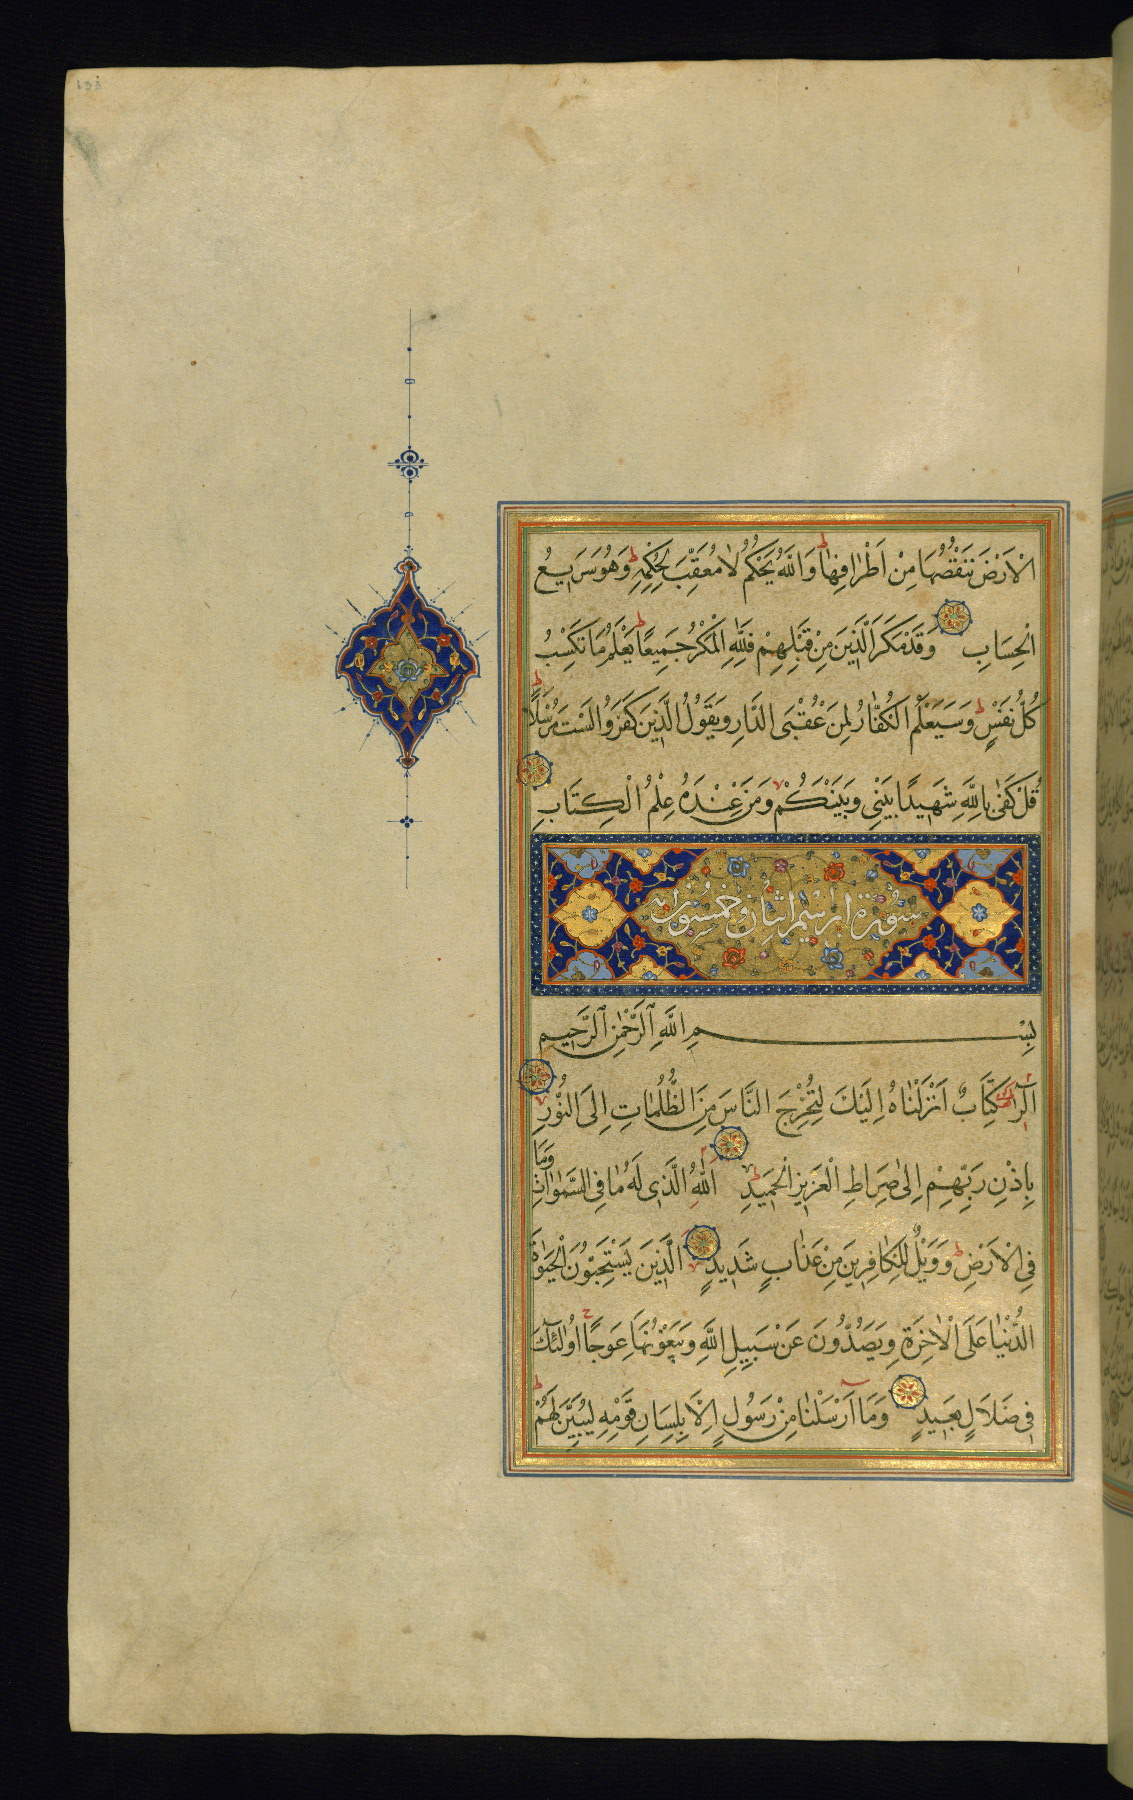 الْاَرْضَ نَنْقُصُهَا مِنْ اَطْرَافِهَا ط وَاللّٰهُ يَحْكُمُ لَا مُعَقِّبَ لِحُكْمِهِ ط وَهُوَ سَرِيعُ
الْحِسَابِ وَقَدْ مَكَرَ الَّذِينَ مِنْ قَبْلِهِمْ فَلِلّٰهِ الْمَكْرُ جَمِيعًا ط يَعْلَمُ مَا تَكْسِبُ
كُلُّ نَفْسٍ ط وَسَيَعْلَمُ الْكُفَّارُ لِمَنْ عُقْبَى الدَّارِ وَيَقُولُ الَّذِينَ كَفَرُوا لَسْتَ مُرْسَلًا ط
قُلْ كَفٰى بِاللّٰهِ شَهِيدًا بَيْنِى وَبَيْنَكُمْ وَمَنْ عِنْدَهُ عِلْمُ الْكِتَابِ
سورة ابرهيم اثنان وخمسون اية
بِسْمِ اللّٰهِ الرَّحْمٰنِ الرَّحِيمِ
الٓرٰ كِتَابٌ اَنْزَلْنَاهُ اِلَيْكَ لِتُخْرِجَ النَّاسَ مِنَ الظُّلُمَاتِ اِلَى النُّورِ
بِاِذْنِ رَبِّهِمْ اِلٰى صِرَاطِ الْعَزِيزِ الْحَمِيدِ اَللّٰهِ الَّذِى لَهُ مَا فِى السَّمٰوَاتِ وَمَا
فِى الْاَرْضِ ط وَوَيْلٌ لِلْكَافِرِينَ مِنْ عَذَابٍ شَدِيدٍ اَلَّذِينَ يَسْتَحِبُّونَ الْحَيٰوةَ
الدُّنْيَا عَلَى الْاٰخِرَةِ وَيَصُدُّونَ عَنْ سَبِيلِ اللّٰهِ وَيَبْغُونَهَا عِوَجًا ج اُولٰئِكَ
فِى ضَلَالٍ بَعِيدٍ وَمَا اَرْسَلْنَا مِنْ رَسُولٍ اِلَّا بِلِسَانِ قَوْمِهِ لِيُبَيِّنَ لَهُمْ ط